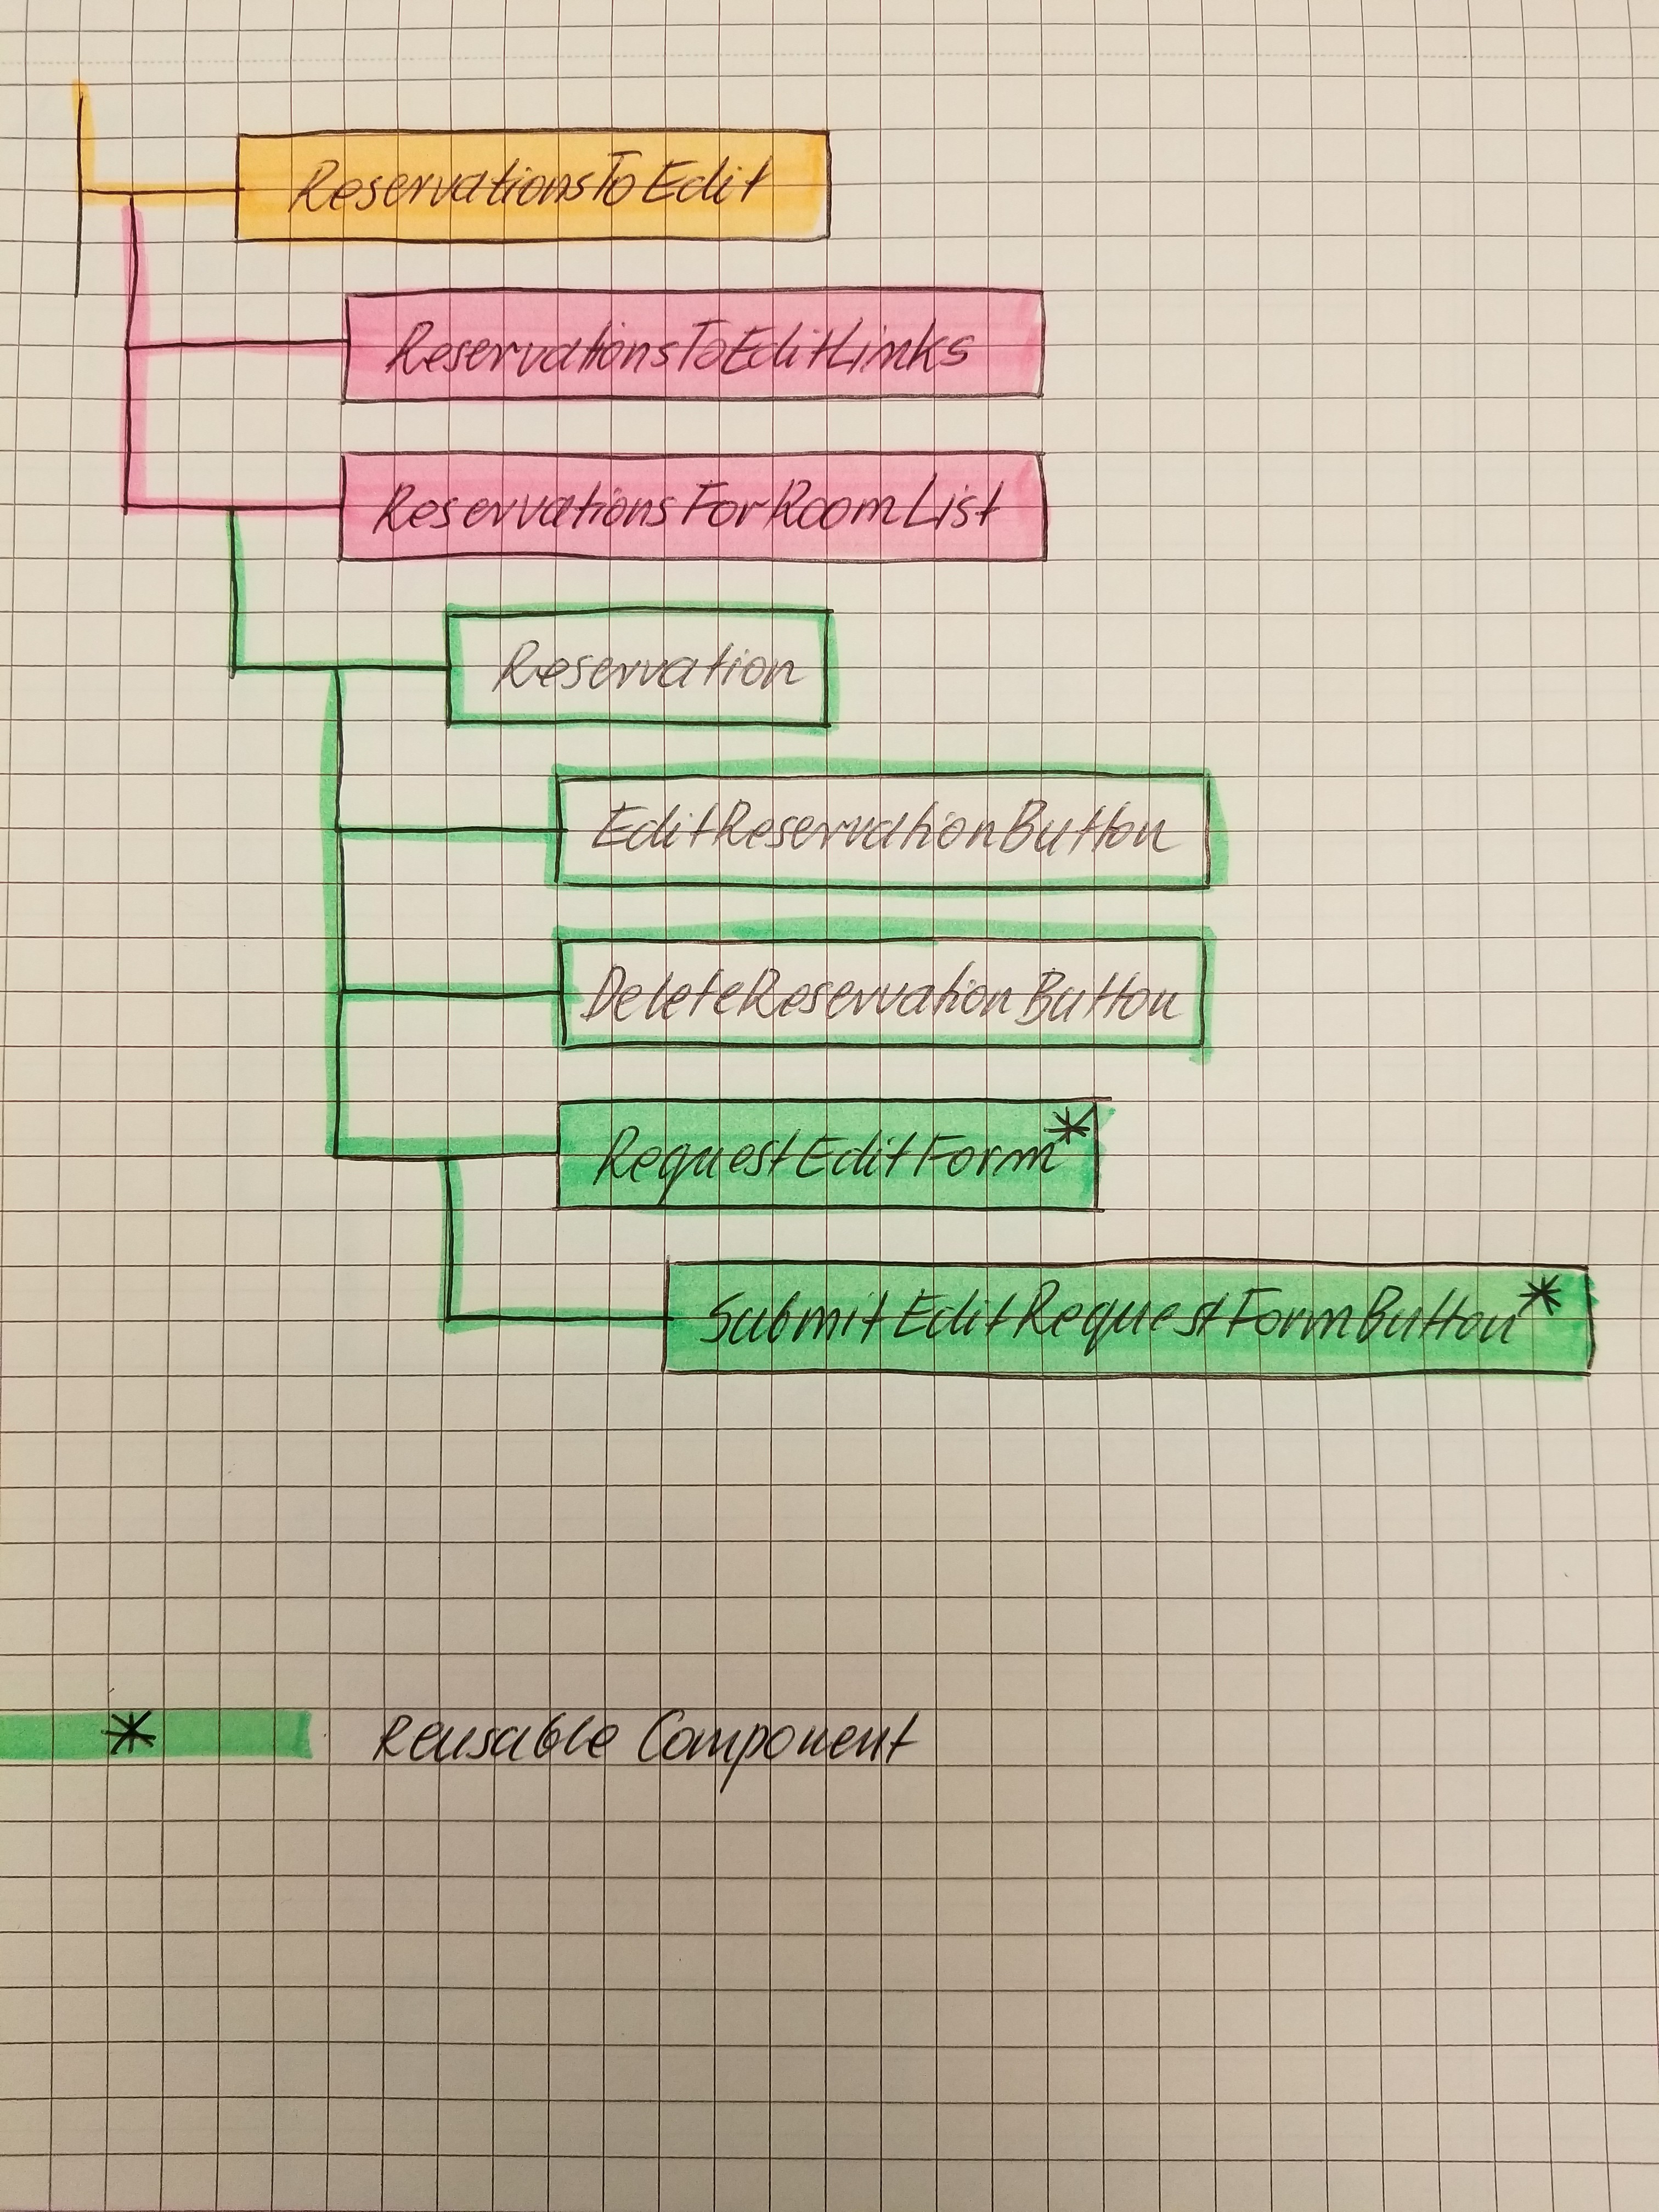 ReservationsToEdit
ReservationsToEditLinks
ReservationsForRoomList
Reservation
EditReservationButton
DeleteReservationButton
RequestEditForm*
SubmitEditRequestFormButton*
* Reusable Component